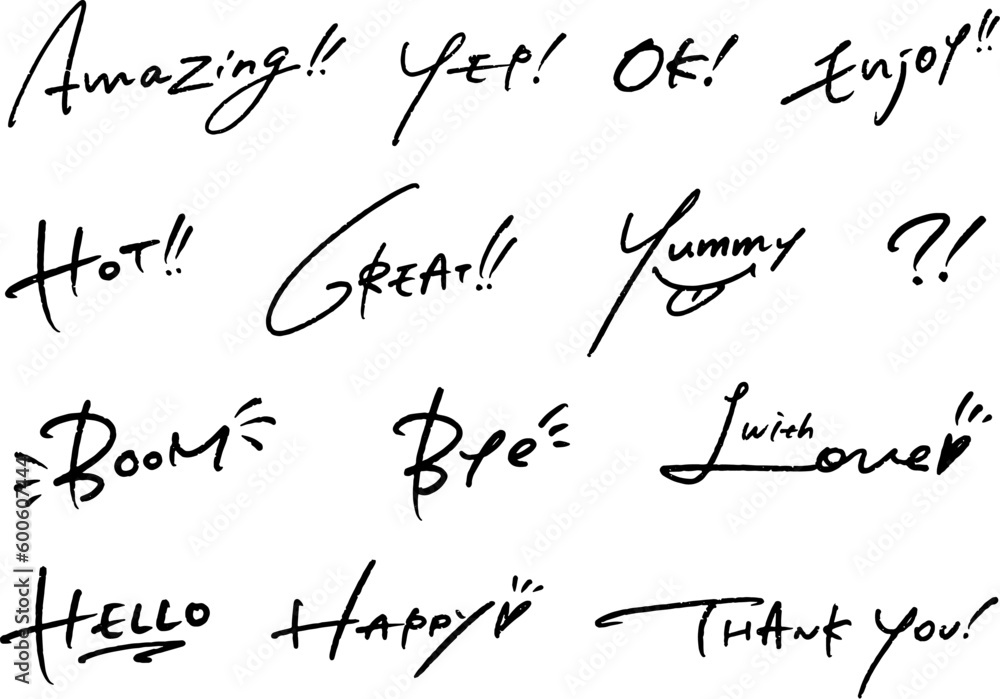 Amazing!! YEP! OK! Enjoy!!
HOT!! GREAT!! Yummy ?!
BOOM Bye with Love
HELLO HAPPY THANK YOU!
Adobe Stock | #600607444